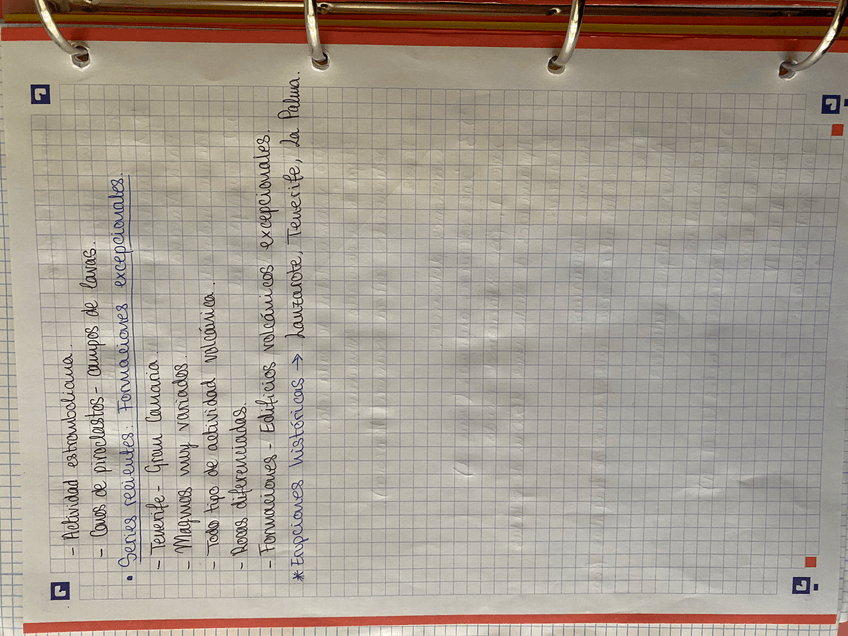 - Actividad estromboliana.
- Conos de piroclastos - campos de lavas.
• Series recientes: Formaciones excepcionales.
- Tenerife - Gran Canaria
- Magmas muy variados.
- Todo tipo de actividad volcánica.
- Rocas diferenciadas.
- Formaciones - Edificios volcánicos excepcionales.
* Erupciones históricas → Lanzarote, Tenerife, La Palma.